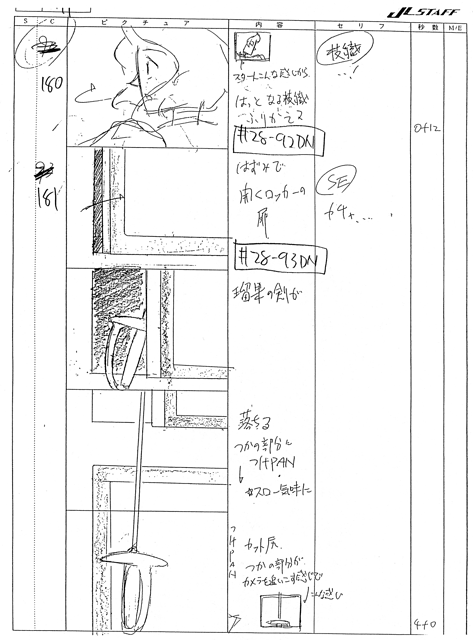 J.C.STAFF
S
C
ピクチュア
内容
セリフ
秒数
M/E
180
スタートこんな感じから
はっとなる枝織
ふりかえる
#28-92DN
枝織
…!
0+12
181
はずみで
開くロッカーの
扉
#28-93DN
SE
カチャ……
瑠果の剣が
落ちる
つかの部分に
つけPAN
スロー気味に
つけPAN
カット尻
つかの部分が
カメラを追いこす感じで
こんな感じ
4+0